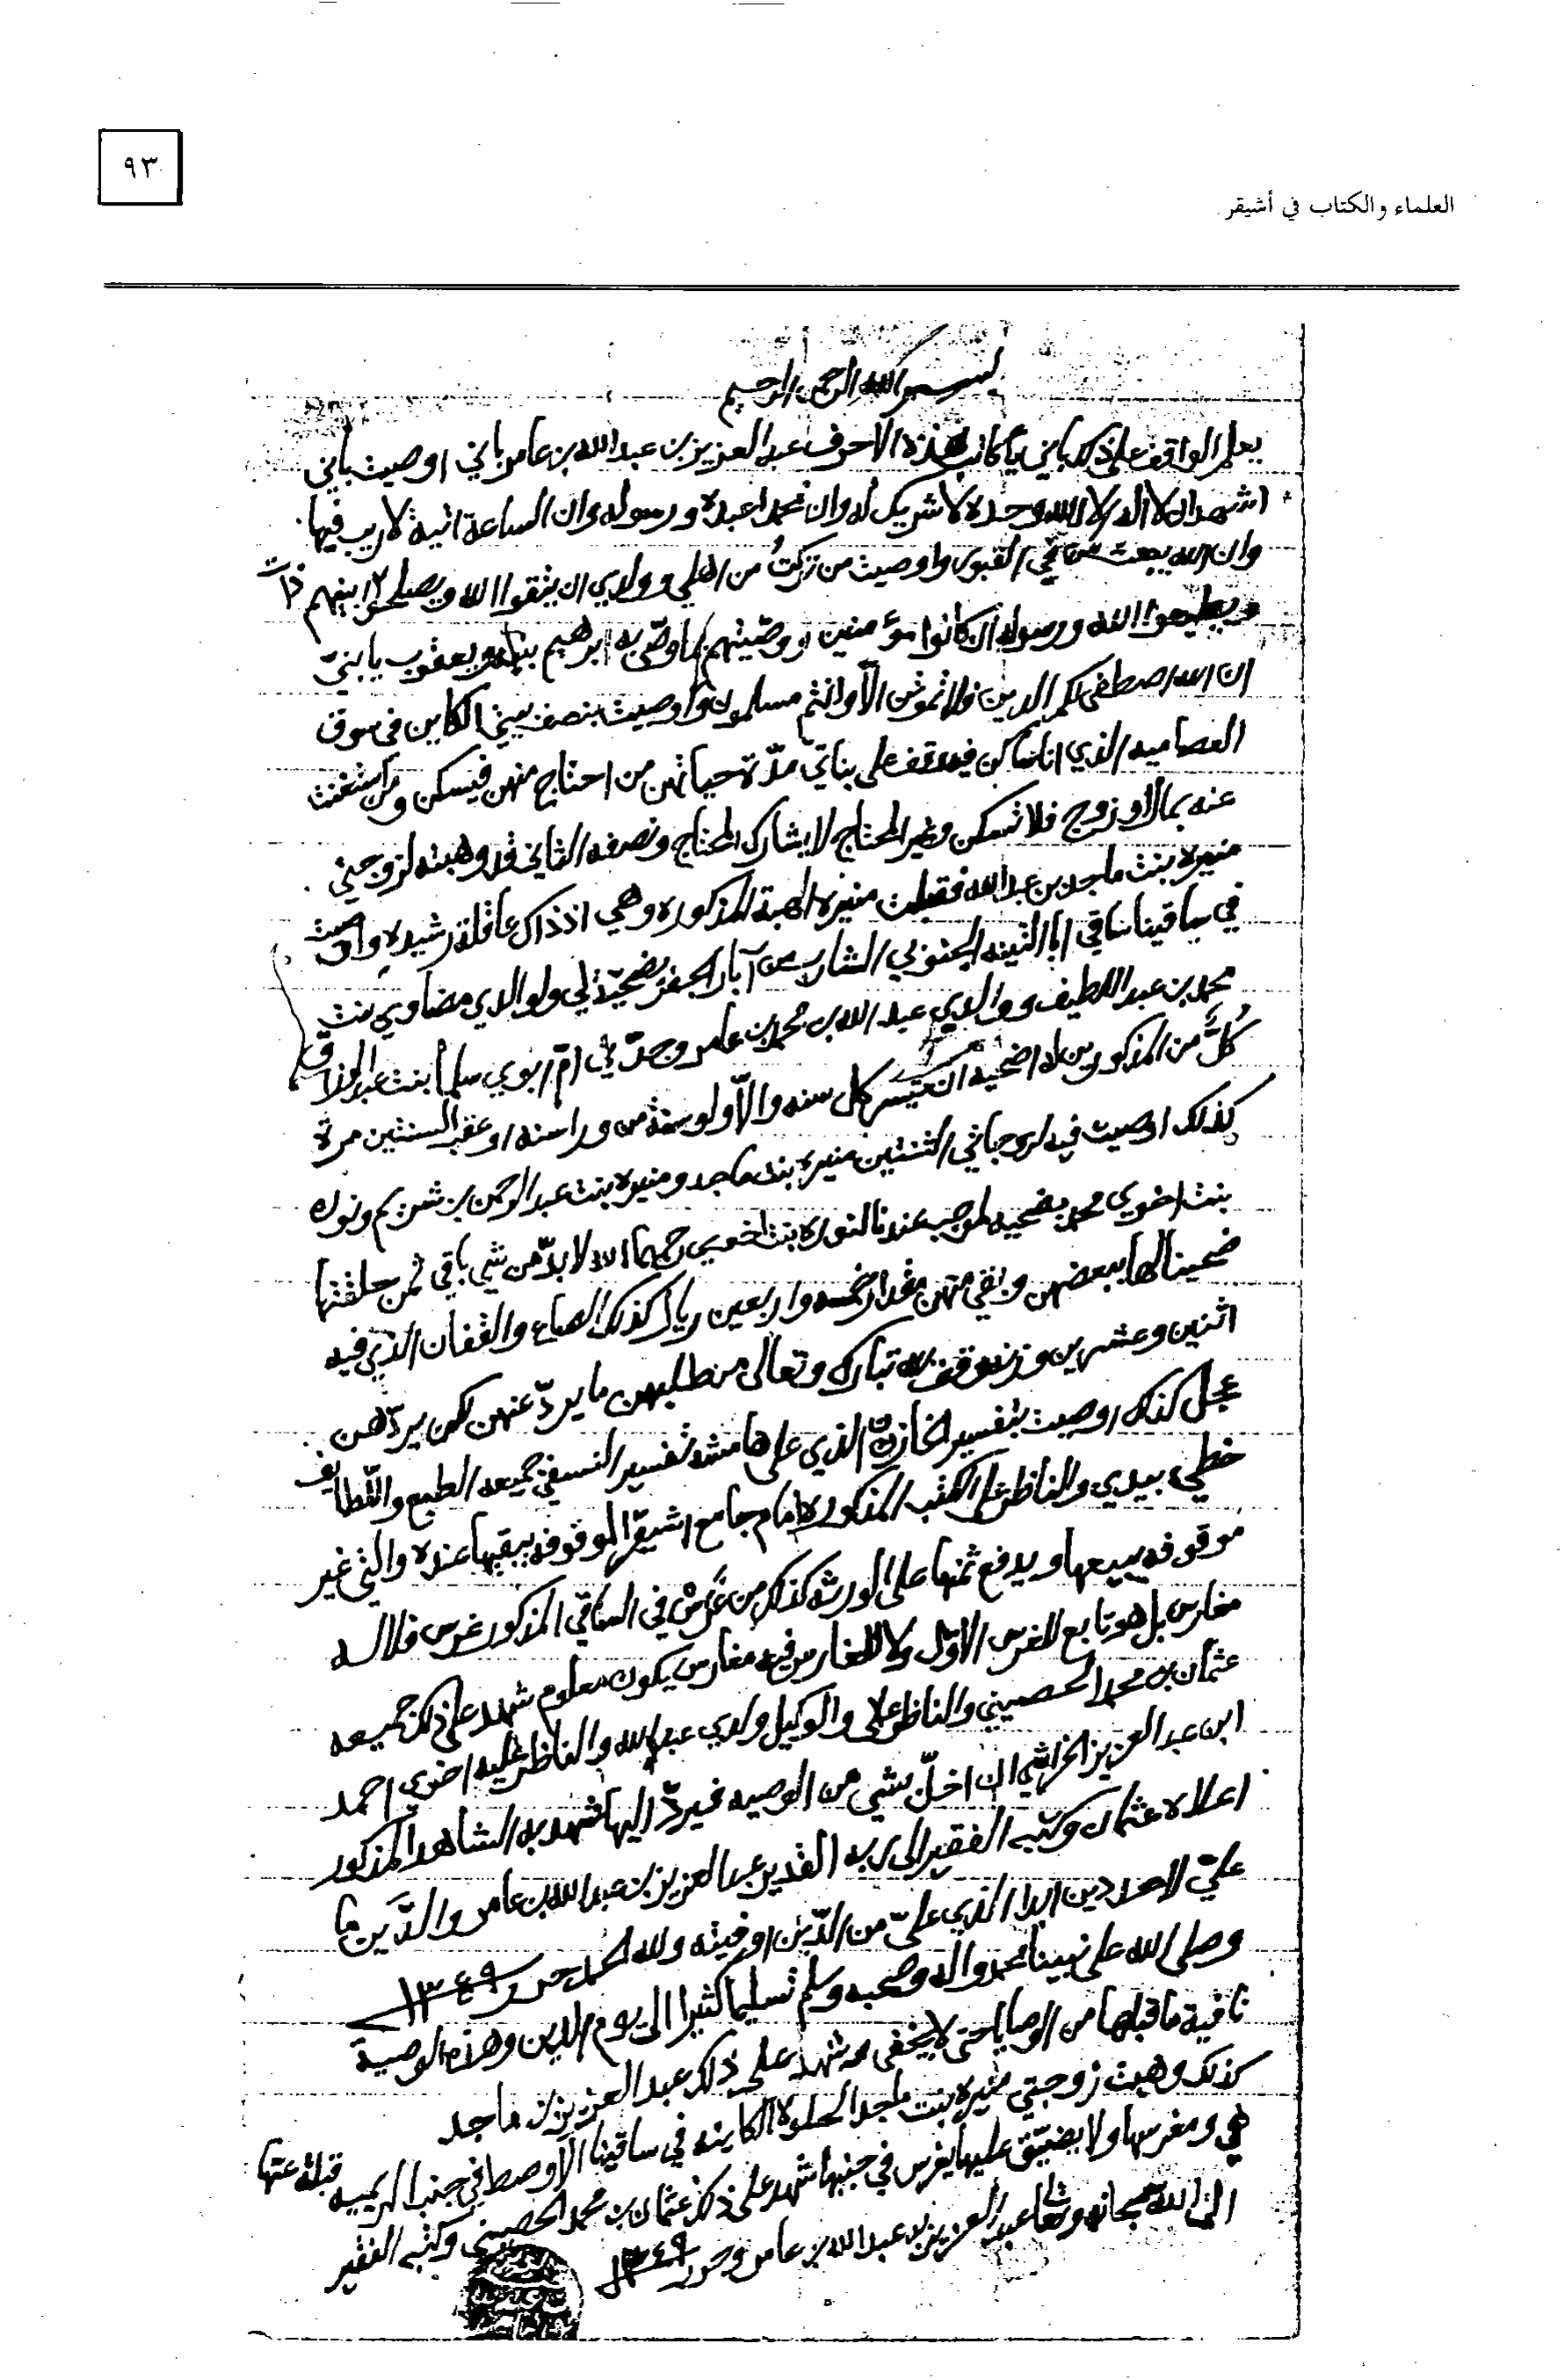 ٩٣
العلماء والكتاب في أشيقر
بسم الله الرحمن الرحيم
يعلم الواقف على ذلك باني يا كاتب هذه الاحرف عبد العزيز بن عبد الله بن عامر باني اوصيت باني
اشهد ان لا اله الا الله وحده لا شريك له وان محمدا عبده ورسوله وان الساعة اتية لا ريب فيها
وان الله يبعث من في القبور واوصيت من تركتُ من اهلي وولدي ان يتقوا الله ويصلحوا ذات بينهم
ويطيعوا الله ورسوله ان كانوا مؤمنين ووصّيتهم بما وصّى به ابرهيم بنيه ويعقوب يا بنيّ
ان الله اصطفى لكم الدين فلا تموتن الّا وانتم مسلمون واوصيت بنصف بيتي الكاين في سوق
العصاميه الذي انا ساكن فيه وقف على بناتي مدّة حياتهن من احتاج منهن فيسكن ومن استغنت
عنه بمال او زوج فلا تسكن وغير المحتاج لا يشارك المحتاج ونصفه الثاني قد وهبته لزوجتي
منيره بنت ماجد بن عبد الله فقبلت منيره الهبة المذكوره وهي اذ ذاك عاقلة رشيده واوصيت
في ساقينا ساقي الجنوبي الشارب من آبار الجفر بضحيّة لي ولوالدي مضاوي بنت
محمد بن عبد اللطيف ووالدي عبد الله بن محمد بن عامر وجدّتي امّ ابوي سلما بنت عبد الرزاق
كُلٌّ من المذكورين له اضحيه ان تيسر كل سنه والّا ولو سنة من ورا سنه او عقب السنتين مرة
كذلك اوصيت فيه لزوجاتي الثنتين منيره بنت ماجد ومنيره بنت عبد الرحمن بن شريم ونوره
بنت اخوي محمد بضحيه لموجب عندنا لنوره بنت اخوي رحمها الله لا بدّ من شي باقي ثمن حلقتها
ضحينا لها ببعضهن وبقي منهن مقدار خمسه واربعين ريال كذلك الصاع والقفان الذي فيه
اثنين وعشرين وزنه وقف لله تبارك وتعالى من طلبهن ما يردّ عنهن لكن يردّهن
عجل كذلك اوصيت بتفسير الخازن الذي على هامشه تفسير النسفي جميعه الطبع واللّطايف
خطي بيدي والناظر على الكتب المذكوره امام جامع اشيقر الموقوفه يبقيها عنده والتي غير
موقوفه يبيعها ويدفع ثمنها على الورثه كذلك من غَرَسْ في الساقي المذكور غرس فلا له
مغارس بل هو تابع للغرس الاوّل ولا للغارس فيه مغارس يكون معلوم شهد على ذلك جميعه
عثمان بن محمد الحصيني والناظر علي والوكيل ولدي عبد الله والناظر عليه اخوي احمد
ابن عبد العزيز الخراشي ان اخلّ بشي من الوصيه فيردّ اليها شهد به الشاهد المذكور
اعلاه عثمان وكتبه الفقير الى ربه القدير عبد العزيز بن عبد الله بن عامر والدَّين ما
عليّ لاحد دين ابدا الذي عليّ من الدّين اوفيته ولله الحمد حرر ١٣٤٩
وصلى الله على نبينا محمد واله وصحبه وسلم تسليما كثيرا الى يوم الدين وهذه الوصية
نافية ما قبلها من الوصايا حتى لا يخفى شهد على ذلك عبد العزيز بن ماجد
كذلك وهبت زوجتي منيره بنت ماجد الحلوة الكاينه في ساقينا الاوصط في جنب قبلة عنها
هي ومغرسها ولا يضيّق عليها بغرس في جنبها شهد على ذلك عثمان بن محمد الحصيني وكتبه الفقير
الى الله سبحانه وتعالى عبد العزيز بن عبد الله بن عامر وحرر ١٣٤٩